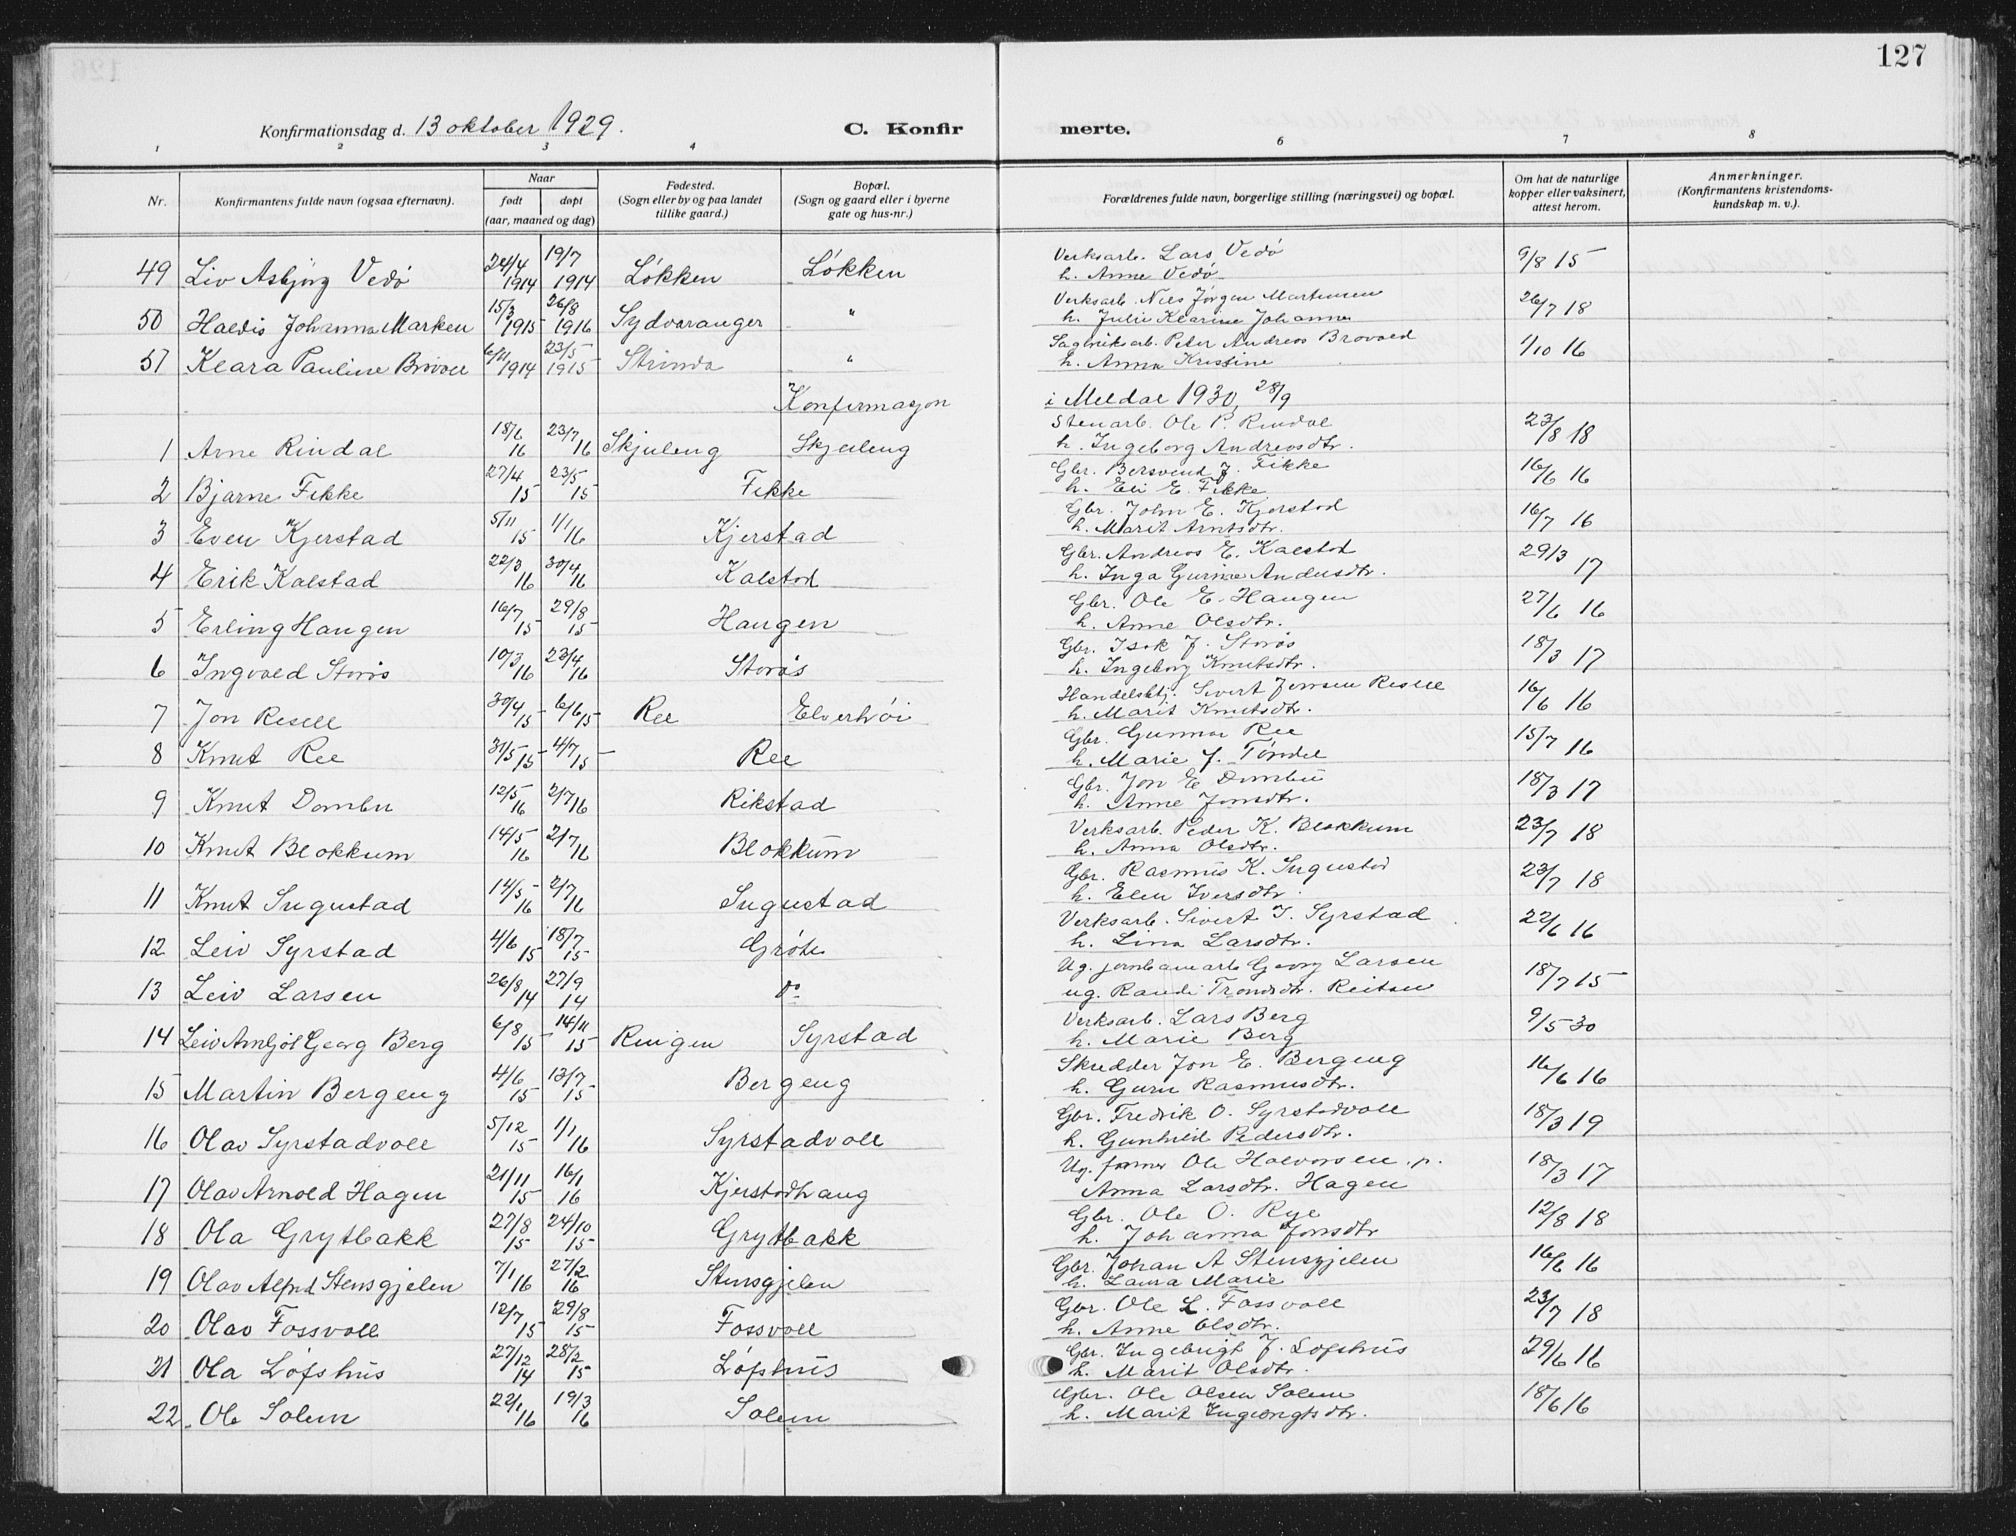 127
Konfirmationsdag d. 13 oktober 1929.
C. Konfirmerte.
1 2 3 4 6 7 8
Nr.
Konfirmantens fulde navn (ogsaa efternavn).
Naar
født
døpt
(aar, maaned og dag)
Fødested.
(Sogn eller by og paa landet
tillike gaard.)
Bopæl.
(Sogn og gaard eller i byerne
gate og hus-nr.)
Forældrenes fulde navn, borgerlige stilling (næringsvei) og bopæl.
Om hat de naturlige
kopper eller vaksinert,
attest herom.
Anmerkninger.
(Konfirmantens kristendoms-
kundskap m. v.).
49 Liv Asbjørg Vedø 24/4 1914 19/7 1914 Løkken Løkken Verksarb. Lars Vedø 9/8 15
h. Anne Vedø
50 Haldis Johanna Marken 15/3 1915 26/8 1916 Sydvaranger " Verksarb. Nils Jørgen Martinsen 26/7 18
h. Julie Klarine Johanne
51 Klara Pauline Brovoll 6/11 1914 23/5 1915 Strinda " Sagbruksarb. Peter Andreas Brovold 1/10 16
h. Anna Kristine
Konfirmasjon i Meldal 1930, 28/9
1 Arne Rindal 18/6 16 23/7 16 Skjuleng Skjuleng Stenarb. Ole P. Rindal 23/8 18
h. Ingeborg Andreasdtr.
2 Bjarne Fikke 27/4 15 23/5 15 Fikke Gbr. Bersvend J. Fikke 16/6 16
h. Eli E. Fikke
3 Even Kjerstad 5/11 15 1/1 16 Kjerstad Gbr. John E. Kjerstad 16/7 16
h. Marit Arntsdtr.
4 Erik Kalstad 22/3 16 30/4 16 Kalstad Gbr. Andreas E. Kalstad 29/3 17
h. Inga Gurine Andersdtr.
5 Erling Haugen 16/7 15 29/8 15 Haugen Gbr. Ole E. Haugen 27/6 16
h. Anne Olsdtr.
6 Ingvald Storås 10/3 16 23/4 16 Storås Gbr. Isak J. Storås 18/3 17
h. Ingeborg Knutsdtr.
7 Jon Resell 30/4 15 6/6 15 Ree Elverhøi Handelsbtj. Sivert Jonsen Resell 16/6 16
h. Marit Knutsdtr.
8 Knut Ree 31/5 15 4/7 15 Ree Gbr. Gunnar Ree 15/7 16
h. Marie J. Tøndel
9 Knut Dombu 12/5 16 2/7 16 Rikstad Gbr. Jon E Dombu 18/3 17
h. Anne Jonsdtr.
10 Knut Blokkum 14/5 16 2/7 16 Blokkum Verksarb. Peder K. Blokkum 23/7 18
h. Anna Olsdtr.
11 Knut Sugustad 14/5 16 2/7 16 Sugustad Gbr. Rasmus K. Sugustad 23/7 18
h. Elen Iversdtr.
12 Leiv Syrstad 4/6 15 18/7 15 Grøte Verksarb. Sivert I. Syrstad 22/6 16
h. Lina Larsdtr.
13 Leiv Larsen 26/8 14 27/9 14 do Ug. jernbanearb Georg Larsen 18/7 15
ug. Randi Trondsdtr. Reitan
14 Leiv Arnljot Georg Berg 6/8 15 14/11 15 Ringen Syrstad Verksarb. Lars Berg 9/5 30
h. Marie Berg
15 Martin Bergeng 4/6 15 13/7 15 Bergeng Skredder Jon E. Bergeng 16/6 16
h. Guru Rasmusdtr.
16 Olav Syrstadvoll 5/12 15 1/1 16 Syrstadvoll Gbr. Fredrik O. Syrstadvoll 18/3 19
h. Gunhild Pedersdtr.
17 Olav Arnold Hagen 21/11 15 16/1 16 Kjerstadhaug Ug. former Ole Halvorsen p. 18/3 17
Anna Larsdtr. Hagen
18 Ola Grytbakk 27/8 15 24/10 15 Grytbakk Gbr. Ole O. Rye 12/8 18
h. Johanna Jonsdtr
19 Olav Alfred Stensgjelen 7/1 16 27/2 16 Stensgjelen Gbr. Johan A Stensgjelen 16/6 16
h. Laura Marie
20 Olav Fossvoll 12/7 15 29/8 15 Fossvoll Gbr. Ole L. Fossvoll 23/7 18
h. Anne Olsdtr.
21 Ola Løfshus 27/12 14 28/2 15 Løfshus Gbr. Ingebrigt J. Løfshus 29/6 16
h. Marit Olsdtr.
22 Ole Solem 22/1 16 19/3 16 Solem Gbr. Ole Olsen Solem 18/6 16
h. Marit Ingebrigtsdtr.